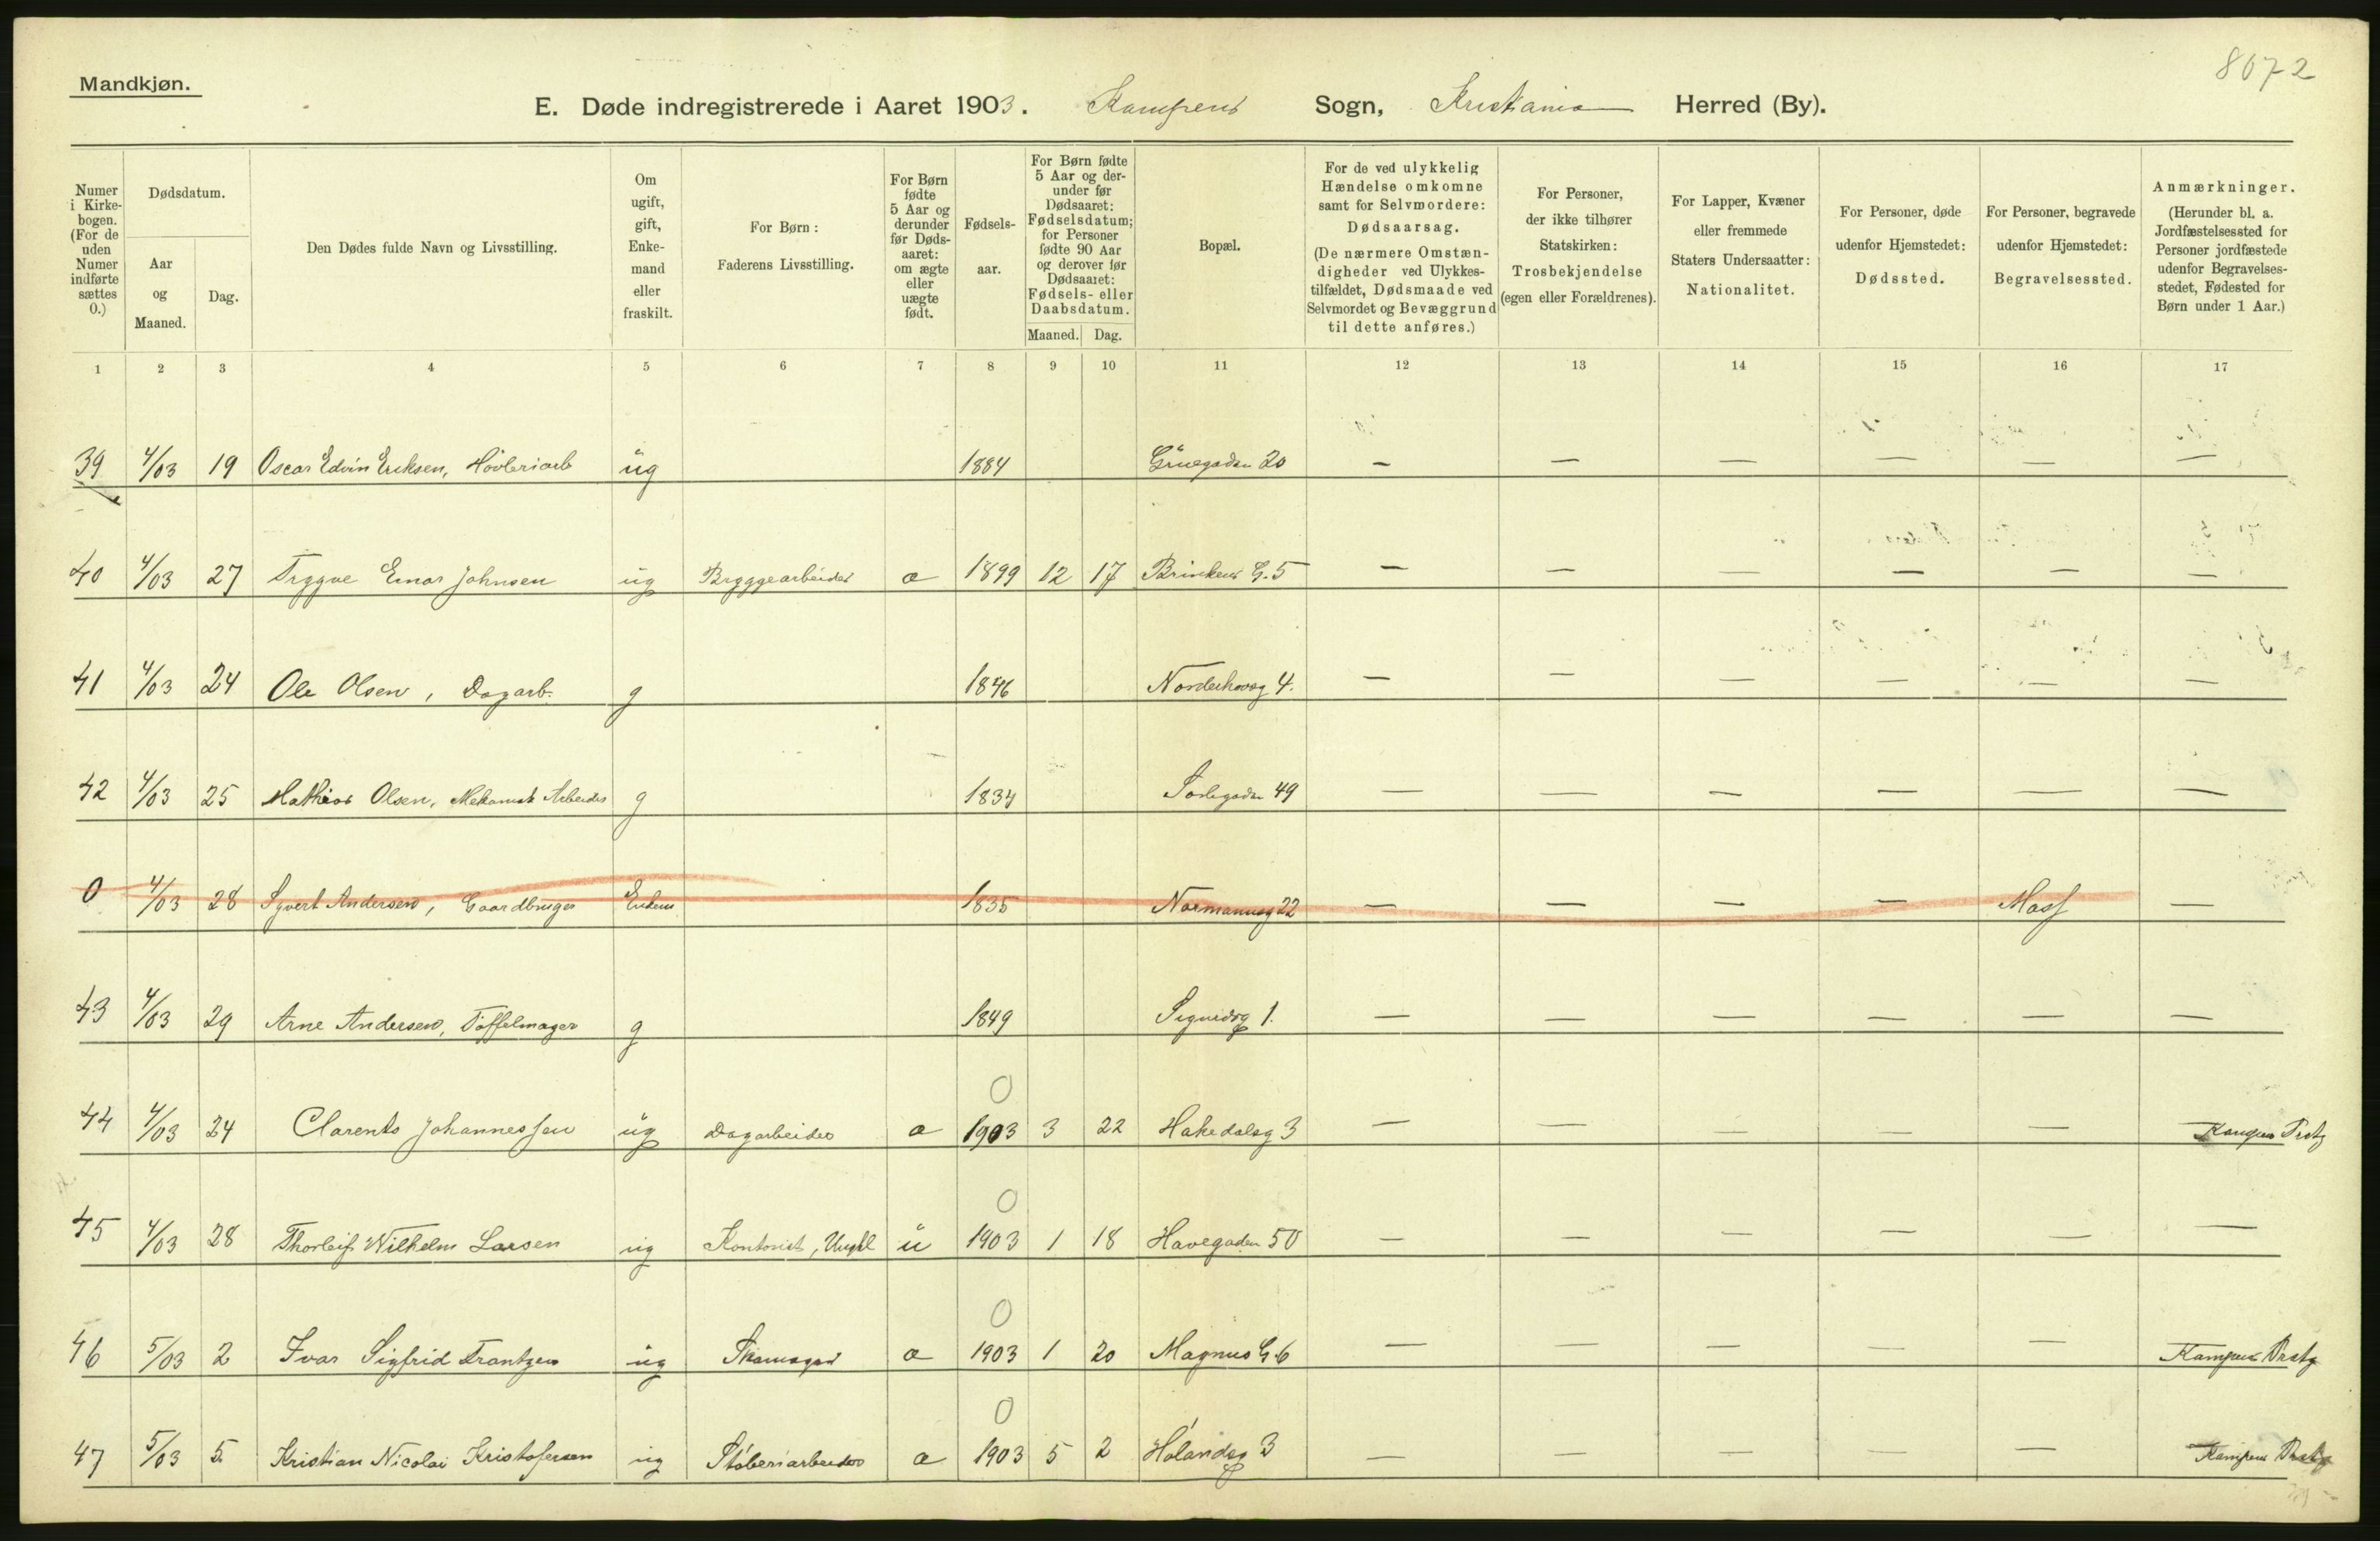 8672
Mandkjøn.
E. Døde indregistrerede i Aaret 1903. Kampens Sogn, Kristiania Herred (By).
Numer i Kirkebogen. (For de uden Numer indførte sættes 0.)
Dødsdatum.
Aar og Maaned.
Dag.
Den Dødes fulde Navn og Livsstilling.
Om ugift, gift, Enkemand eller fraskilt.
For Børn: Faderens Livsstilling.
For Børn fødte 5 Aar og derunder før Dødsaaret: om ægte eller uægte født.
Fødselsaar.
For Børn fødte 5 Aar og derunder før Dødsaaret: Fødselsdatum; for Personer fødte 90 Aar og derover før Dødsaaret: Fødsels- eller Daabsdatum.
Maaned. Dag.
Bopæl.
For de ved ulykkelig Hændelse omkomne samt for Selvmordere: Dødsaarsag. (De nærmere Omstændigheder ved Ulykkestilfældet, Dødsmaade ved Selvmordet og Bevæggrund til dette anføres.)
For Personer, der ikke tilhører Statskirken: Trosbekjendelse (egen eller Forældrenes).
For Lapper, Kvæner eller fremmede Staters Undersaatter: Nationalitet.
For Personer, døde udenfor Hjemstedet: Dødssted.
For Personer, begravede udenfor Hjemstedet: Begravelsessted.
Anmærkninger. (Herunder bl. a. Jordfæstelsessted for Personer jordfæstede udenfor Begravelsesstedet, Fødested for Børn under 1 Aar.)
1 2 3 4 5 6 7 8 9 10 11 12 13 14 15 16 17
39 4/03 19 Oscar Edvin Eriksen, Høvleriarb ug 1884 Grüegaden 20 — — — — — —
40 4/03 27 Tryggve Einar Johnsen ug Bryggearbeider a 1899 12 17 Brinkens G. 5 — — — — — —
41 4/03 24 Ole Olsen, Dagarb. g 1846 Norderhovsg 4. — — — — — —
42 4/03 25 Mathias Olsen, Mekanisk Arbeider g 1834 49 — — — — — —
0 4/03 28 Syvert Andersen, Gaardbruger Enkem 1835 Normannsg 22 — — — — Moss —
43 4/03 29 Arne Andersen, Tøffelmager g 1849 Sigurdsg 1. — — — — — —
0
44 4/03 24 Clarents Johannessen ug Dagarbeider a 1903 3 22 Hakedalsg 3 — — — — — Kampens Prstg
0
45 4/03 28 Thorleif Wilhelm Larsen ug Kontorist, Ungkl u 1903 1 18 Havegaden 50 — — — — — —
0
46 5/03 2 Ivar Sigfrid Frantzen ug Skomager a 1903 1 20 Magnus G. 6 — — — — — Kampens Prstg
0
47 5/03 5 Kristian Nicolai Kristofersen ug Støberiarbeider a 1903 5 2 Hølandsg 3 — — — — — Kampens Prstg